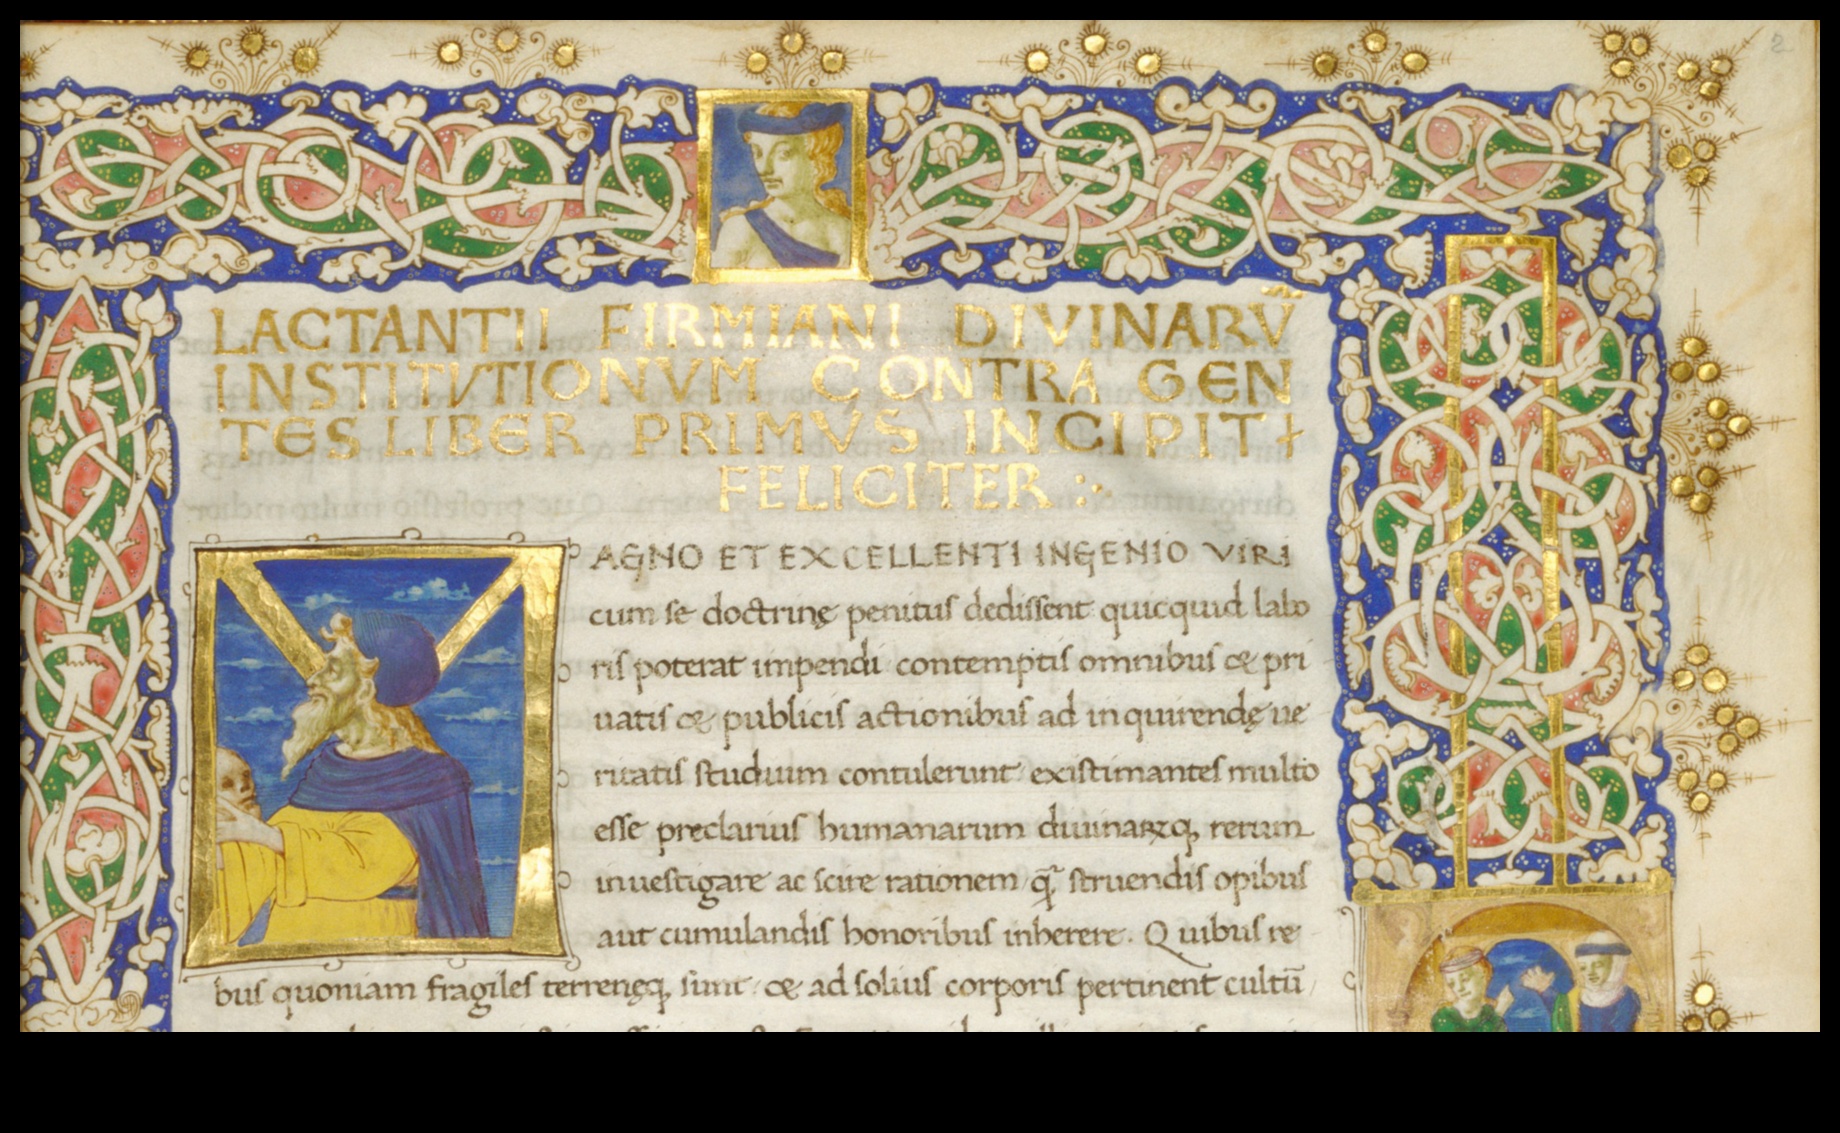 LACTANTII FIRMIANI DIVINARŪ
INSTITVTIONVM CONTRA GEN
TES LIBER PRIMVS INCIPIT
FELICITER :·
MAGNO ET EXCELLENTI INGENIO VIRI
cum se doctrinę penitus dedissent quicquid labo
ris poterat impendi contemptis omnibus & pri
uatis & publicis actionibus ad inquirendę ue
ritatis studium contulerunt existimantes multo
esse preclarius humanarum diuinaꝝq; rerum
inuestigare ac scire rationem q̃ struendis opibus
aut cumulandis honoribus inherere. Quibus re
bus quoniam fragiles terrenęq; sunt & ad solius corporis pertinent cultū
2